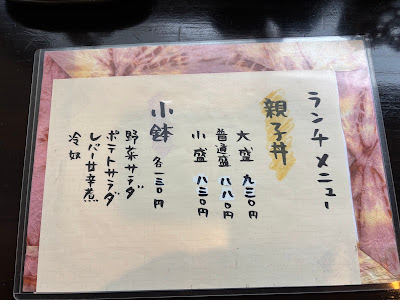 ランチメニュー
親子丼
大盛 九三〇円
普通盛 八八〇円
小盛 八三〇円
小鉢 各一三〇円
野菜サラダ
ポテトサラダ
レバー甘辛煮
冷奴